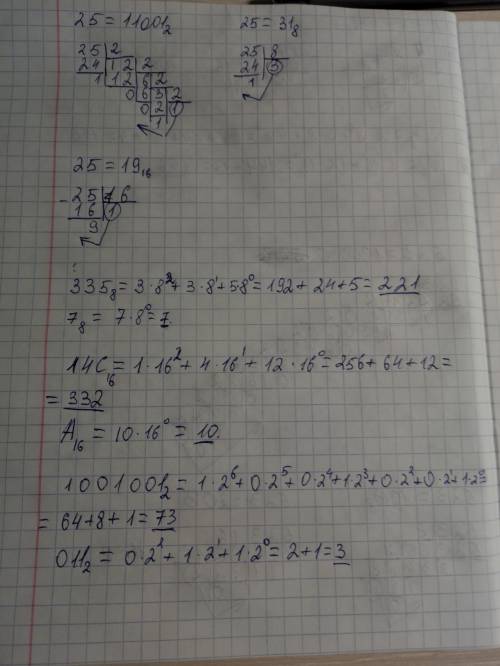 25 = 11001₂ 25 = 31₈
25 2 25 8
24 12 2 24 3
1 12 6 2 1
0 6 3 2
0 2 1
1
25 = 19₁₆
- 25 16
16 1
9
335₈ = 3·8² + 3·8¹ + 5·8⁰ = 192 + 24 + 5 = 221
7₈ = 7·8⁰ = 7.
14C₁₆ = 1·16² + 4·16¹ + 12·16⁰ = 256 + 64 + 12 =
= 332
A₁₆ = 10·16⁰ = 10.
1001001₂ = 1·2⁶ + 0·2⁵ + 0·2⁴ + 1·2³ + 0·2² + 0·2¹ + 1·2⁰ =
= 64 + 8 + 1 = 73
011₂ = 0·2² + 1·2¹ + 1·2⁰ = 2 + 1 = 3